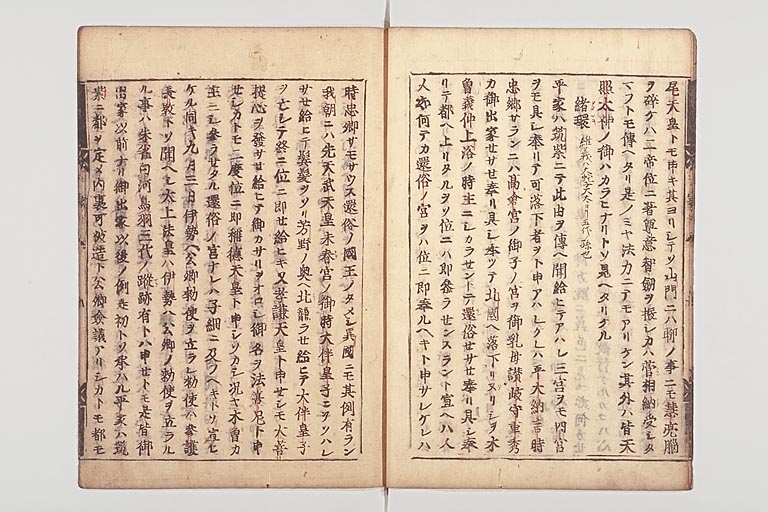 尾天皇トモ申キ其ヨリシテソ山門ニハ聊ノ事ニモ恵亮脳
ヲ砕ケハ二帝位ニ著尊意智劔ヲ振シカハ菅相納受シタ
マフトモ傳ヘタリ是ノミヤ法力ニテモアリケン其外ハ皆天
照太神ノ御ハカラヒナリトソ見ヘタリケル
緒環
平家ハ筑紫ニテ此由ヲ傳ヘ聞給ヒテアハレ三宮ヲモ四宮
ヲモ具シ奉リテ可落下者ヲト申アハレケレハ平大納言時
忠卿サランニハ高倉宮ノ御子ノ宮ヲ御乳母讃岐守重秀
カ御出家セサセ奉リ具シ奉ツテ北國ヘ落下リタリシヲ木
曽義仲上洛ノ時主ニシカラセントテ還俗セサセ奉リ具シ奉
リテ都ヘ上リタルヲソ位ニハ即奉ラセンスラント宣ヘハ人
人亦何テカ還俗ノ宮ヲハ位ニ即奉ルヘキト申サレケレハ
時忠卿サモサウス還俗ノ國王ノタメシ異國ニモ其例有ラン
我朝ニハ先天武天皇未春宮ノ御時大伴皇子ニヲソハレ
サセ給ヒテ鬢髪ヲソリ芳野ノ奥ヘ北籠ラセ給ヒテ大伴皇子
ヲ亡シテ終ニ位ニ即セ給ヒキ又孝謙天皇ト申セシモ大菩
提心ヲ發サセ給ヒテ御カサリヲオロシ御名ヲ法基尼ト申
セシカトモ二度位ニ即稱德天皇ト申シソカシ况ヤ木曽カ
主ニシ参ラセタル還俗ノ宮ナレハ子細ニ及フヘキトソ宣ヒ
ケル同キ九月二日伊勢ヘ公卿勅使ヲ立ラル勅使ハ参議
長教トソ聞ヘシ太上法皇ハ伊勢ヘ公卿ノ勅使ヲ立ラル
ル事ハ朱雀白河鳥羽三代ノ蹤跡有トハ申セトモ是皆御
出家以前ナリ御出家以後ノ例是初トソ承ハル平家ハ筑
紫ニ都ヲ定メ内裏可被造下公卿僉議アリシカトモ都モ